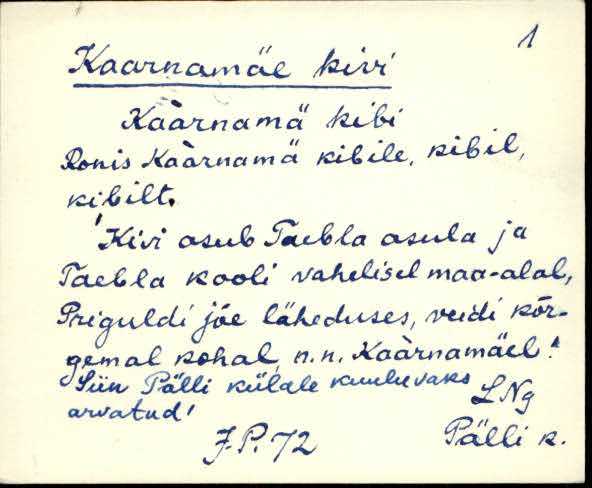 1
Kaarnamäe kivi
Kaàrnamä kibi
Ronis Kaàrnamä kibile, kibil,
kibilt.
'Kivi asub Taebla asula ja
Taebla kooli vahelisel maa-alal,
Priguldi jõe läheduses, veidi kõr-
gemal kohal, n.n. Kaàrnamäel.'
Siin Pälli külale kuuluvaks
arvatud!
LNg
J.P. 72
Pälli k.